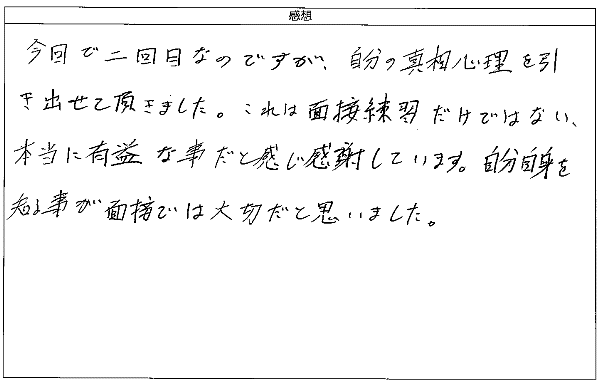 感想
今回で二回目なのですが、自分の真相心理を引
き出せて頂きました。これは面接練習だけではない、
本当に有益な事だと感じ感謝しています。自分自身を
知る事が面接では大切だと思いました。